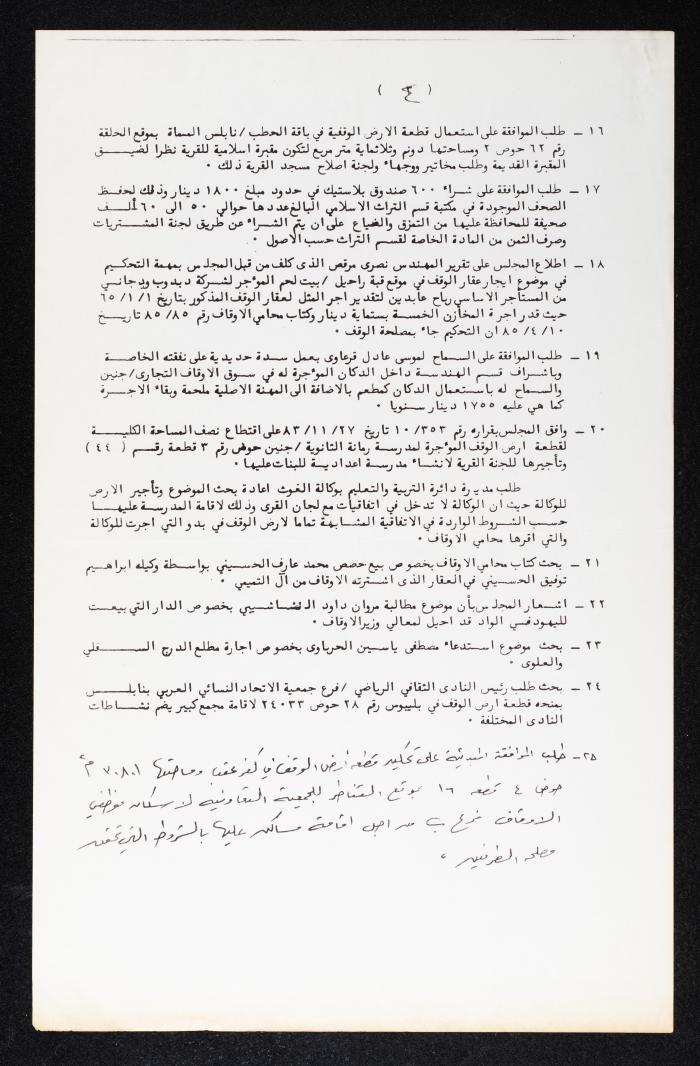 ( ٤ )
١٦ – طلب الموافقة على استعمال قطعة الارض الوقفية في باقة الحطب / نابلس المسماة بموقع الحلقة
رقم ٦٢ حوض ٢ ومساحتها دونم وثلاثماية متر مربع لتكون مقبرة اسلامية للقرية نظرا لضيق
المقبرة القديمة وطلب مخاتير ووجهاء ولجنة اصلاح مسجد القرية ذلك .
١٧ – طلب الموافقة على شراء ٦٠٠ صندوق بلاستيك في حدود مبلغ ١٨٠٠ دينار وذلك لحفظ
الصحف الموجودة في مكتبة قسم التراث الاسلامي البالغ عددها حوالي ٥٠ الى ٦٠ ألف
صحيفة للمحافظة عليها من التمزق والضياع على ان يتم الشراء عن طريق لجنة المشتريات
وصرف الثمن من المادة الخاصة لقسم التراث حسب الاصول .
١٨ – اطلاع المجلس على تقرير المهندس نصرى مرقص الذى كلف من قبل المجلس بمهمة التحكيم
في موضوع ايجار عقار الوقف في موقع قبة راحيل / بيت لحم المؤجر لشركة دبدوب ودجاني
من المستأجر الاساسي رباح عابدين لتقدير اجر المثل لعقار الوقف المذكور بتاريخ ٦٥/١/١
حيث قدر اجرة المخازن الخمسة بستماية دينار وكتاب محامي الاوقاف رقم ٨٥/٨٥ تاريخ
٨٥/٤/١٠ ان التحكيم جاء بمصلحة الوقف .
١٩ – طلب الموافقة على السماح لموسى عادل قرعاوى بعمل سدة حديدية على نفقته الخاصة
وباشراف قسم الهندسة داخل الدكان المؤجرة له في سوق الاوقاف التجارى / جنين
والسماح له باستعمال الدكان كمطعم بالاضافة الى المهنة الاصلية ملحمة وبقاء الاجرة
كما هي عليه ١٧٥٥ دينار سنويا .
٢٠ – وافق المجلس بقراره رقم ١٠/٣٥٣ تاريخ ٨٣/١١/٢٧ على اقتطاع نصف المساحة الكلية
لقطعة ارض الوقف المؤجرة لمدرسة رمانة الثانوية / جنين حوض رقم ٣ قطعة رقم ( ٤٤ )
وتأجيرها للجنة القرية لانشاء مدرسة اعدادية للبنات عليها .
طلب مديرة دائرة التربية والتعليم بوكالة الغوث اعادة بحث الموضوع وتأجير الارض
للوكالة حيث ان الوكالة لا تدخل في اتفاقيات مع لجان القرى وذلك لاقامة المدرسة عليها
حسب الشروط الواردة في الاتفاقية المشابهة تماما لارض الوقف في بدو التي اجرت للوكالة
والتي اقرها محامي الاوقاف .
٢١ – بحث كتاب محامي الاوقاف بخصوص بيع حصص محمد عارف الحسيني بواسطة وكيله ابراهيم
توفيق الحسيني في العقار الذى اشترته الاوقاف من آل التميمي .
٢٢ – اشعار المجلس بأن موضوع مطالبة مروان داود النشاشيبي بخصوص الدار التي بيعت
لليهود في الواد قد احيل لمعالي وزير الاوقاف .
٢٣ – بحث موضوع استدعاء مصطفى ياسين الحرباوى بخصوص اجارة مطلع الدرج السفلي
والعلوى .
٢٤ – بحث طلب رئيس النادى الثقافي الرياضي / فرع جمعية الاتحاد النسائي العربي بنابلس
بمنحه قطعة ارض الوقف في بليبوس رقم ٢٨ حوض ٢٤٠٣٣ لاقامة مجمع كبير يضم نشاطات
النادى المختلفة .
٢٥ – طلب الموافقة المبدئية على تحكير قطعة ارض الوقف في كفر عقب ومساحتها ٧٠٨٠١ م٢
حوض ٤ قطعة ١٦ موقع القناطر للجمعية التعاونية لاسكان موظفي
الاوقاف من اجل اقامة مساكن عليها بالشروط التي تحقق
مصلحة الطرفين .